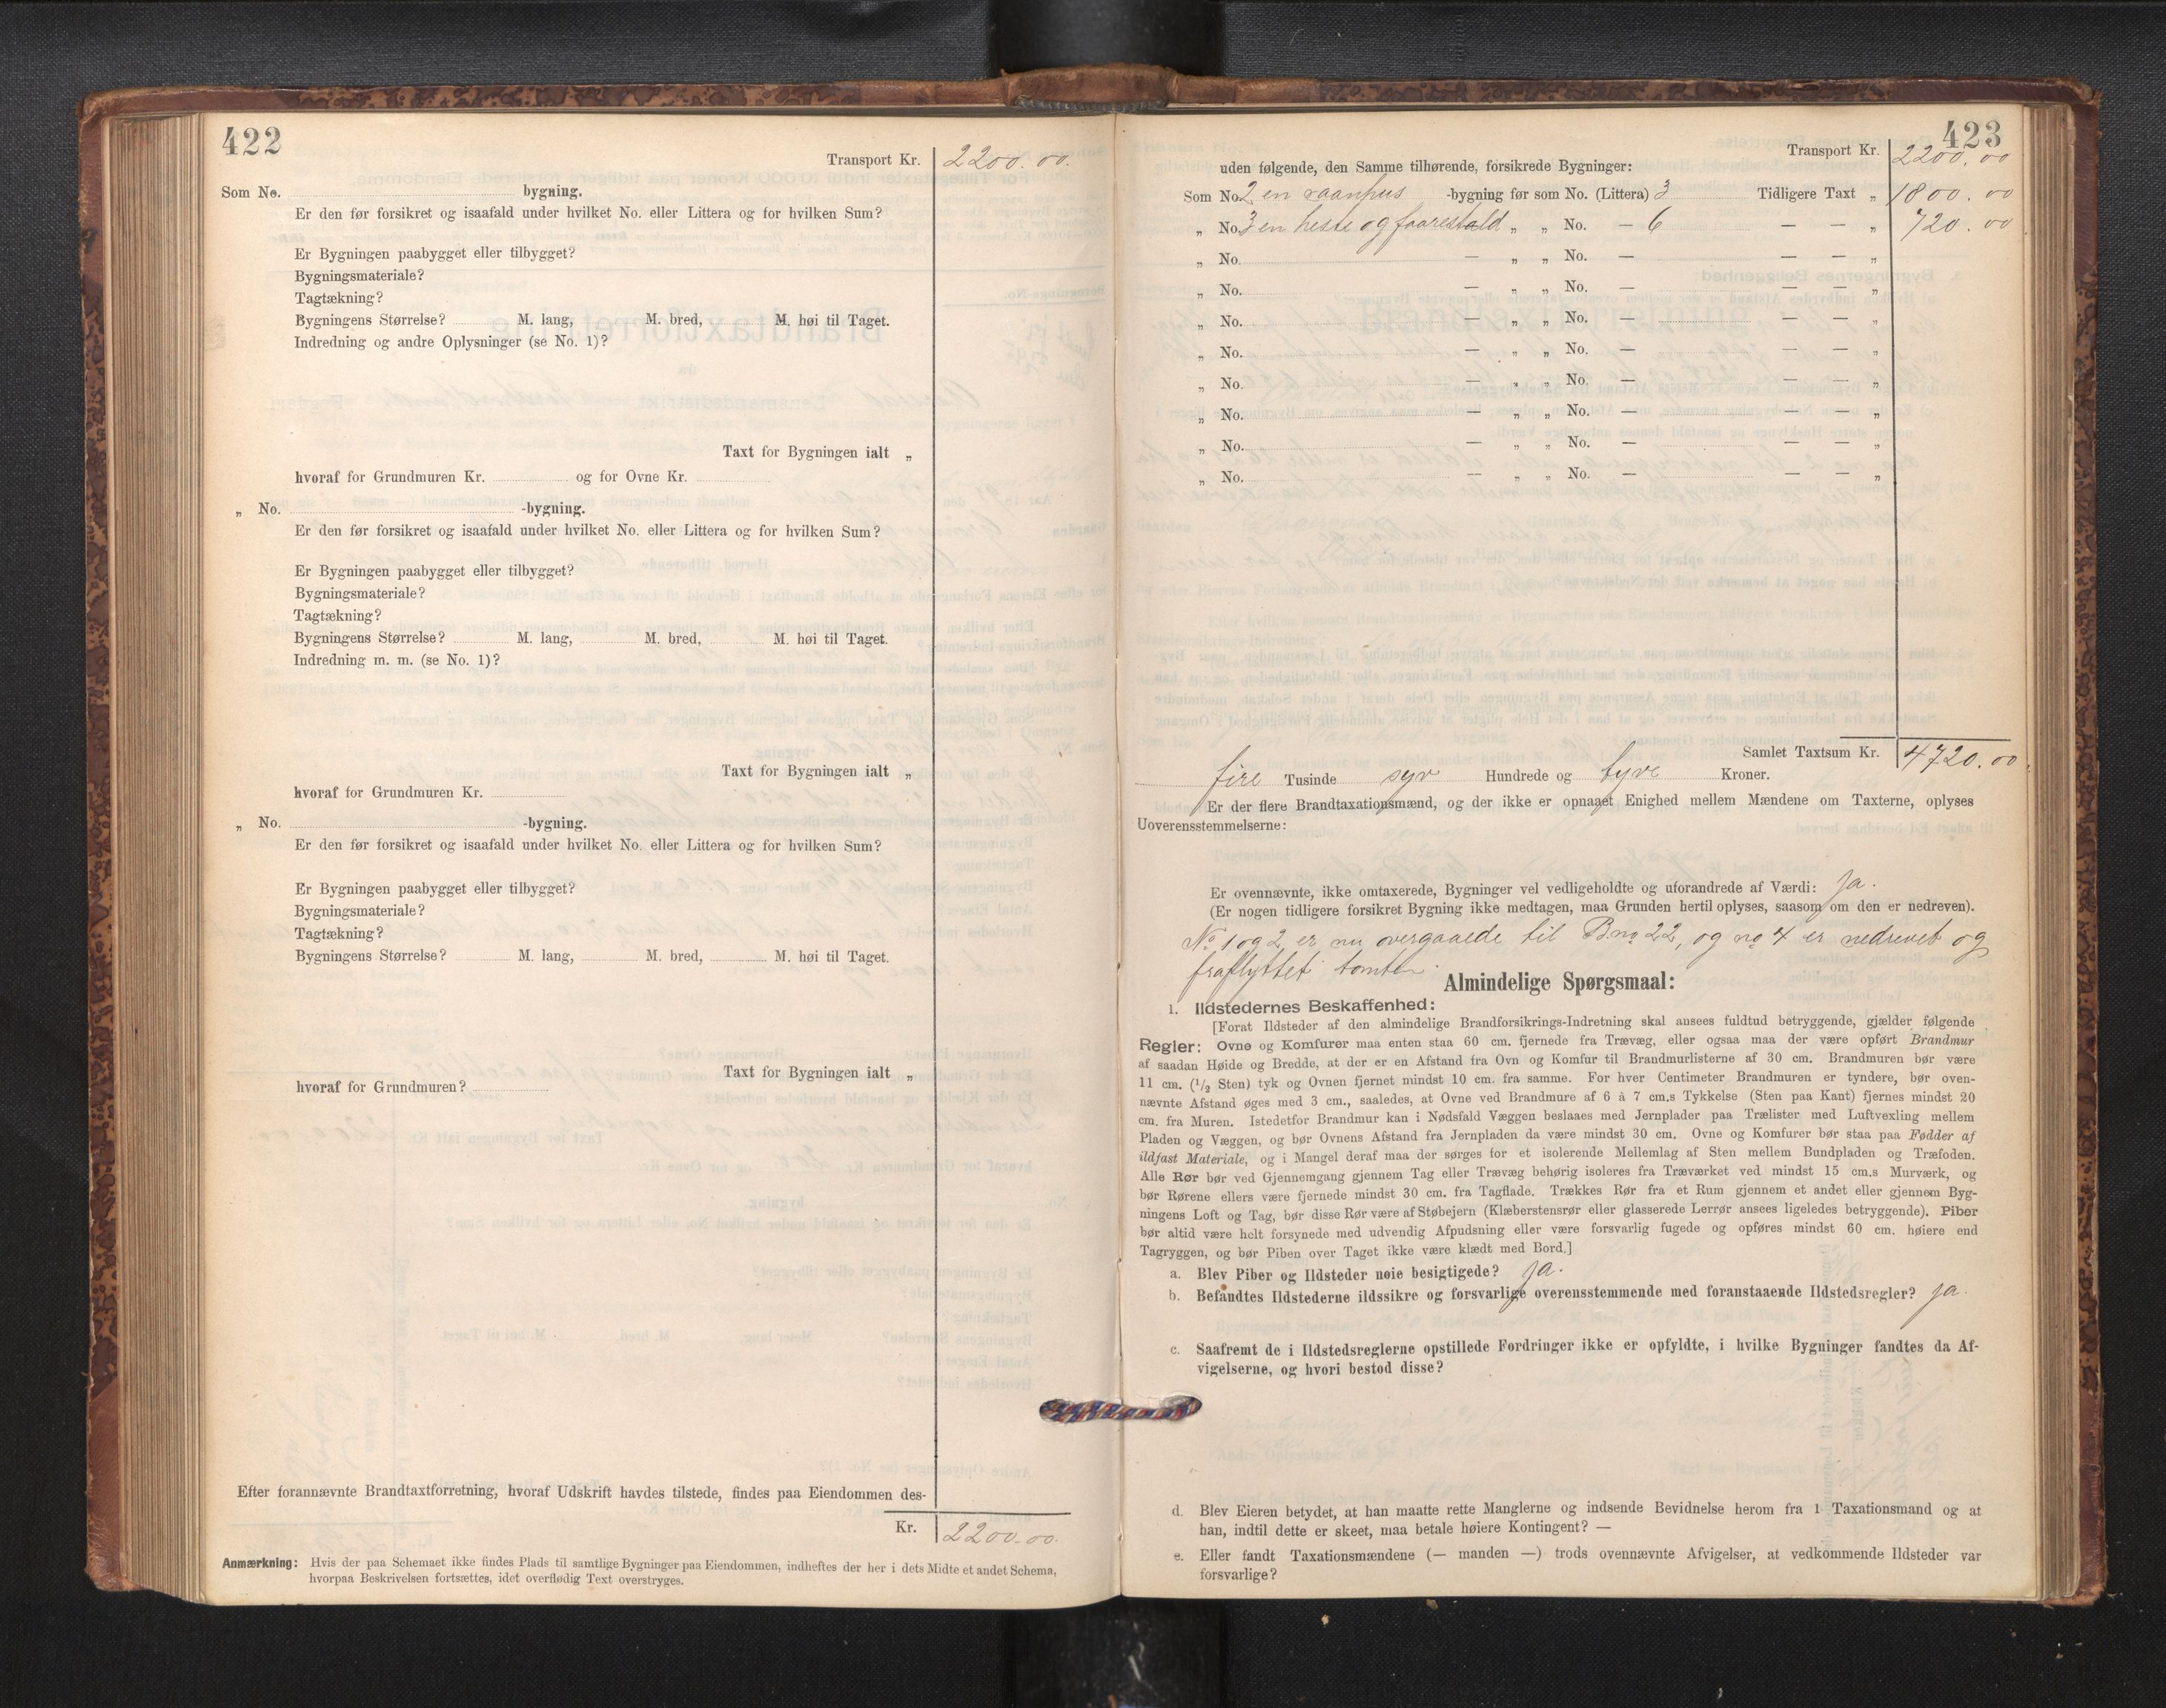 422
Transport Kr. 2200.00.
Som No. bygning.
Er den før forsikret og isaafald under hvilket No. eller Littera og for hvilken Sum?
Er Bygningen paabygget eller tilbygget?
Bygningsmateriale?
Tagtækning?
Bygningens Størrelse? M. lang, M. bred, M. høi til Taget.
Indredning og andre Oplysninger (se No. 1)?
Taxt for Bygningen ialt „
hvoraf for Grundmuren Kr. og for Ovne Kr.
„ No. -bygning.
Er den før forsikret og isaafald under hvilket No. eller Littera og for hvilken Sum?
Er Bygningen paabygget eller tilbygget?
Bygningsmateriale?
Tagtækning?
Bygningens Størrelse? M. lang, M. bred, M. høi til Taget.
Indredning m. m. (se No. 1)?
Taxt for Bygningen ialt „
hvoraf for Grundmuren Kr.
„ No. -bygning.
Er den før forsikret og isaafald under hvilket No. eller Littera og for hvilken Sum?
Er Bygningen paabygget eller tilbygget?
Bygningsmateriale?
Tagtækning?
Bygningens Størrelse? M. lang, M. bred, M. høi til Taget.
Taxt for Bygningen ialt „
hvoraf for Grundmuren?
Efter forannævnte Brandtaxtforretning, hvoraf Udskrift havdes tilstede, findes paa Eiendommen des-
Kr. 2200.00.
Anmærkning: Hvis der paa Schemaet ikke findes Plads til samtlige Bygninger paa Eiendommen, indheftes der her i dets Midte et andet Schema,
hvorpaa Beskrivelsen fortsættes, idet overflødig Text overstryges.
423
Transport Kr. 2200.00
uden følgende, den Samme tilhørende, forsikrede Bygninger:
Som No. 2 en vaanhus -bygning før som No. (Littera) 3 Tidligere Taxt „ 1800.00
„ No. 3 en heste og faarestald „ „ No. — 6 — — „ 720.00
„ No. — „ „ No. — — — „
„ No. — „ „ No. — — — „
„ No. — „ „ No. — — — „
„ No. — „ „ No. — — — „
„ No. — „ „ No. — — — „
„ No. — „ „ No. — — — „
„ No. — „ „ No. — — — „
„ No. — „ „ No. — — — „
Samlet Taxtsum Kr. 4720.00
fire Tusinde syv Hundrede og tyve Kroner.
Er der flere Brandtaxationsmænd, og der ikke er opnaaet Enighed mellem Mændene om Taxterne, oplyses
Uoverensstemmelserne:
Er ovennævnte, ikke omtaxerede, Bygninger vel vedligeholdte og uforandrede af Værdi: Ja.
(Er nogen tidligere forsikret Bygning ikke medtagen, maa Grunden hertil oplyses, saasom om den er nedreven).
No 1 og 2 er nu overgaaede til Bno 22, og no 4 er nedrevet og
fraflyttet tomten.
Almindelige Spørgsmaal:
1. Ildstedernes Beskaffenhed:
[Forat Ildsteder af den almindelige Brandforsikrings-Indretning skal ansees fuldtud betryggende, gjælder følgende
Regler: Ovne og Komfurer maa enten staa 60 cm. fjernede fra Trævæg, eller ogsaa maa der være opført Brandmur
af saadan Høide og Bredde, at der er en Afstand fra Ovn og Komfur til Brandmurlisterne af 30 cm. Brandmuren bør være
11 cm. (1/2 Sten) tyk og Ovnen fjernet mindst 10 cm. fra samme. For hver Centimeter Brandmuren er tyndere, bør oven-
nævnte Afstand øges med 3 cm., saaledes, at Ovne ved Brandmure af 6 à 7 cm.s Tykkelse (Sten paa Kant) fjernes mindst 20
cm. fra Muren. Istedetfor Brandmur kan i Nødsfald Væggen beslaaes med Jernplader paa Trælister med Luftvexling mellem
Pladen og Væggen, og bør Ovnens Afstand fra Jernpladen da være mindst 30 cm. Ovne og Komfurer bør staa paa Fødder af
ildfast Materiale, og i Mangel deraf maa der sørges for et isolerende Mellemlag af Sten mellem Bundpladen og Træfoden.
Alle Rør bør ved Gjennemgang gjennem Tag eller Trævæg behørig isoleres fra Træværket ved mindst 15 cm.s Murværk, og
bør Rørene ellers være fjernede mindst 30 cm. fra Tagflade. Trækkes Rør fra et Rum gjennem et andet eller gjennem Byg-
ningens Loft og Tag, bør disse Rør være af Støbejern (Klæberstensrør eller glasserede Lerrør ansees ligeledes betryggende). Piber
bør altid være helt forsynede med udvendig Afpudsning eller være forsvarlig fugede og opføres mindst 60 cm. høiere end
Tagryggen, og bør Piben over Taget ikke være klædt med Bord.]
a. Blev Piber og Ildsteder nøie besigtigede? Ja.
b. Befandtes Ildstederne ildssikre og forsvarlige overensstemmende med foranstaaende Ildstedsregler? Ja.
c. Saafremt de i Ildstedsreglerne opstillede Fordringer ikke er opfyldte, i hvilke Bygninger fandtes da Af-
vigelserne, og hvori bestod disse?
d. Blev Eieren betydet, at han maatte rette Manglerne og indsende Bevidnelse herom fra 1 Taxationsmand og at
han, indtil dette er skeet, maa betale høiere Kontingent? —
e. Eller fandt Taxationsmændene (— manden —) trods ovennævnte Afvigelser, at vedkommende Ildsteder var
forsvarlige?